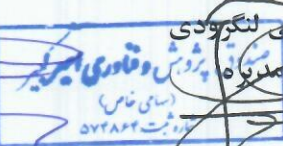 لنگرودی
صندوق پژوهش و فناوری امیرکبیر
مدیره
(سهامی خاص)
شماره ثبت ۵۷۴۸۶۴